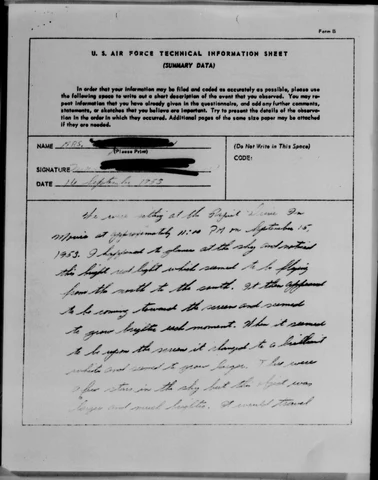 Form D
U. S. AIR FORCE TECHNICAL INFORMATION SHEET
(SUMMARY DATA)
In order that your information may be filed and coded as accurately as possible, please use
the following space to write out a short description of the event that you observed. You may re-
peat information that you have already given in the questionnaire, and add any further comments,
statements, or sketches that you believe are important. Try to present the details of the observa-
tion in the order in which they occurred. Additional pages of the same size paper may be attached
if they are needed.
NAME MRS.
(Please Print)
SIGNATURE
DATE 16 September 1953
(Do Not Write in This Space)
CODE:
We were at the Drive In
at approximately 11:00 PM on September 15,
1953. I happened to glance at the sky and noticed
this bright red light which seemed to be flying
from the north to the south. It then appeared
to be coming towards the screen and seemed
to grow brighter each moment. When it seemed
to be upon the screen it changed to a brilliant
white and seemed to grow larger. There were
a few stars in the sky but this object was
larger and much brighter. It would travel